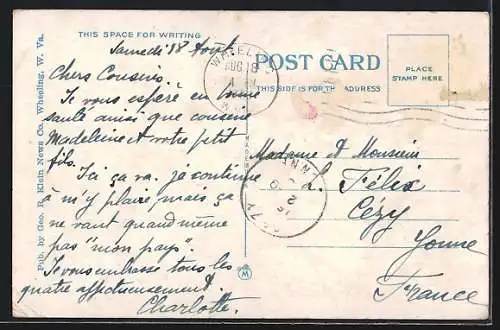 THIS SPACE FOR WRITING
POST CARD
THIS SIDE IS FOR THE ADDRESS
PLACE
STAMP HERE
Pub. by Geo. R. Klein News Co., Wheeling, W. Va.
Samedi 18 Aout
Chers Cousins.
Je vous espère en bonne
santé ainsi que cousine
Madeleine et votre petit
fils.
Ici ça va. je continue
à m'y plaire mais ça
ne vaut quand même
pas "mon pays".
Je vous embrasse tous les
quatre affectueusement.
Charlotte.
WHEELING
AUG 18
Madame et Monsieur
L. Félix
Cézy
Yonne
France